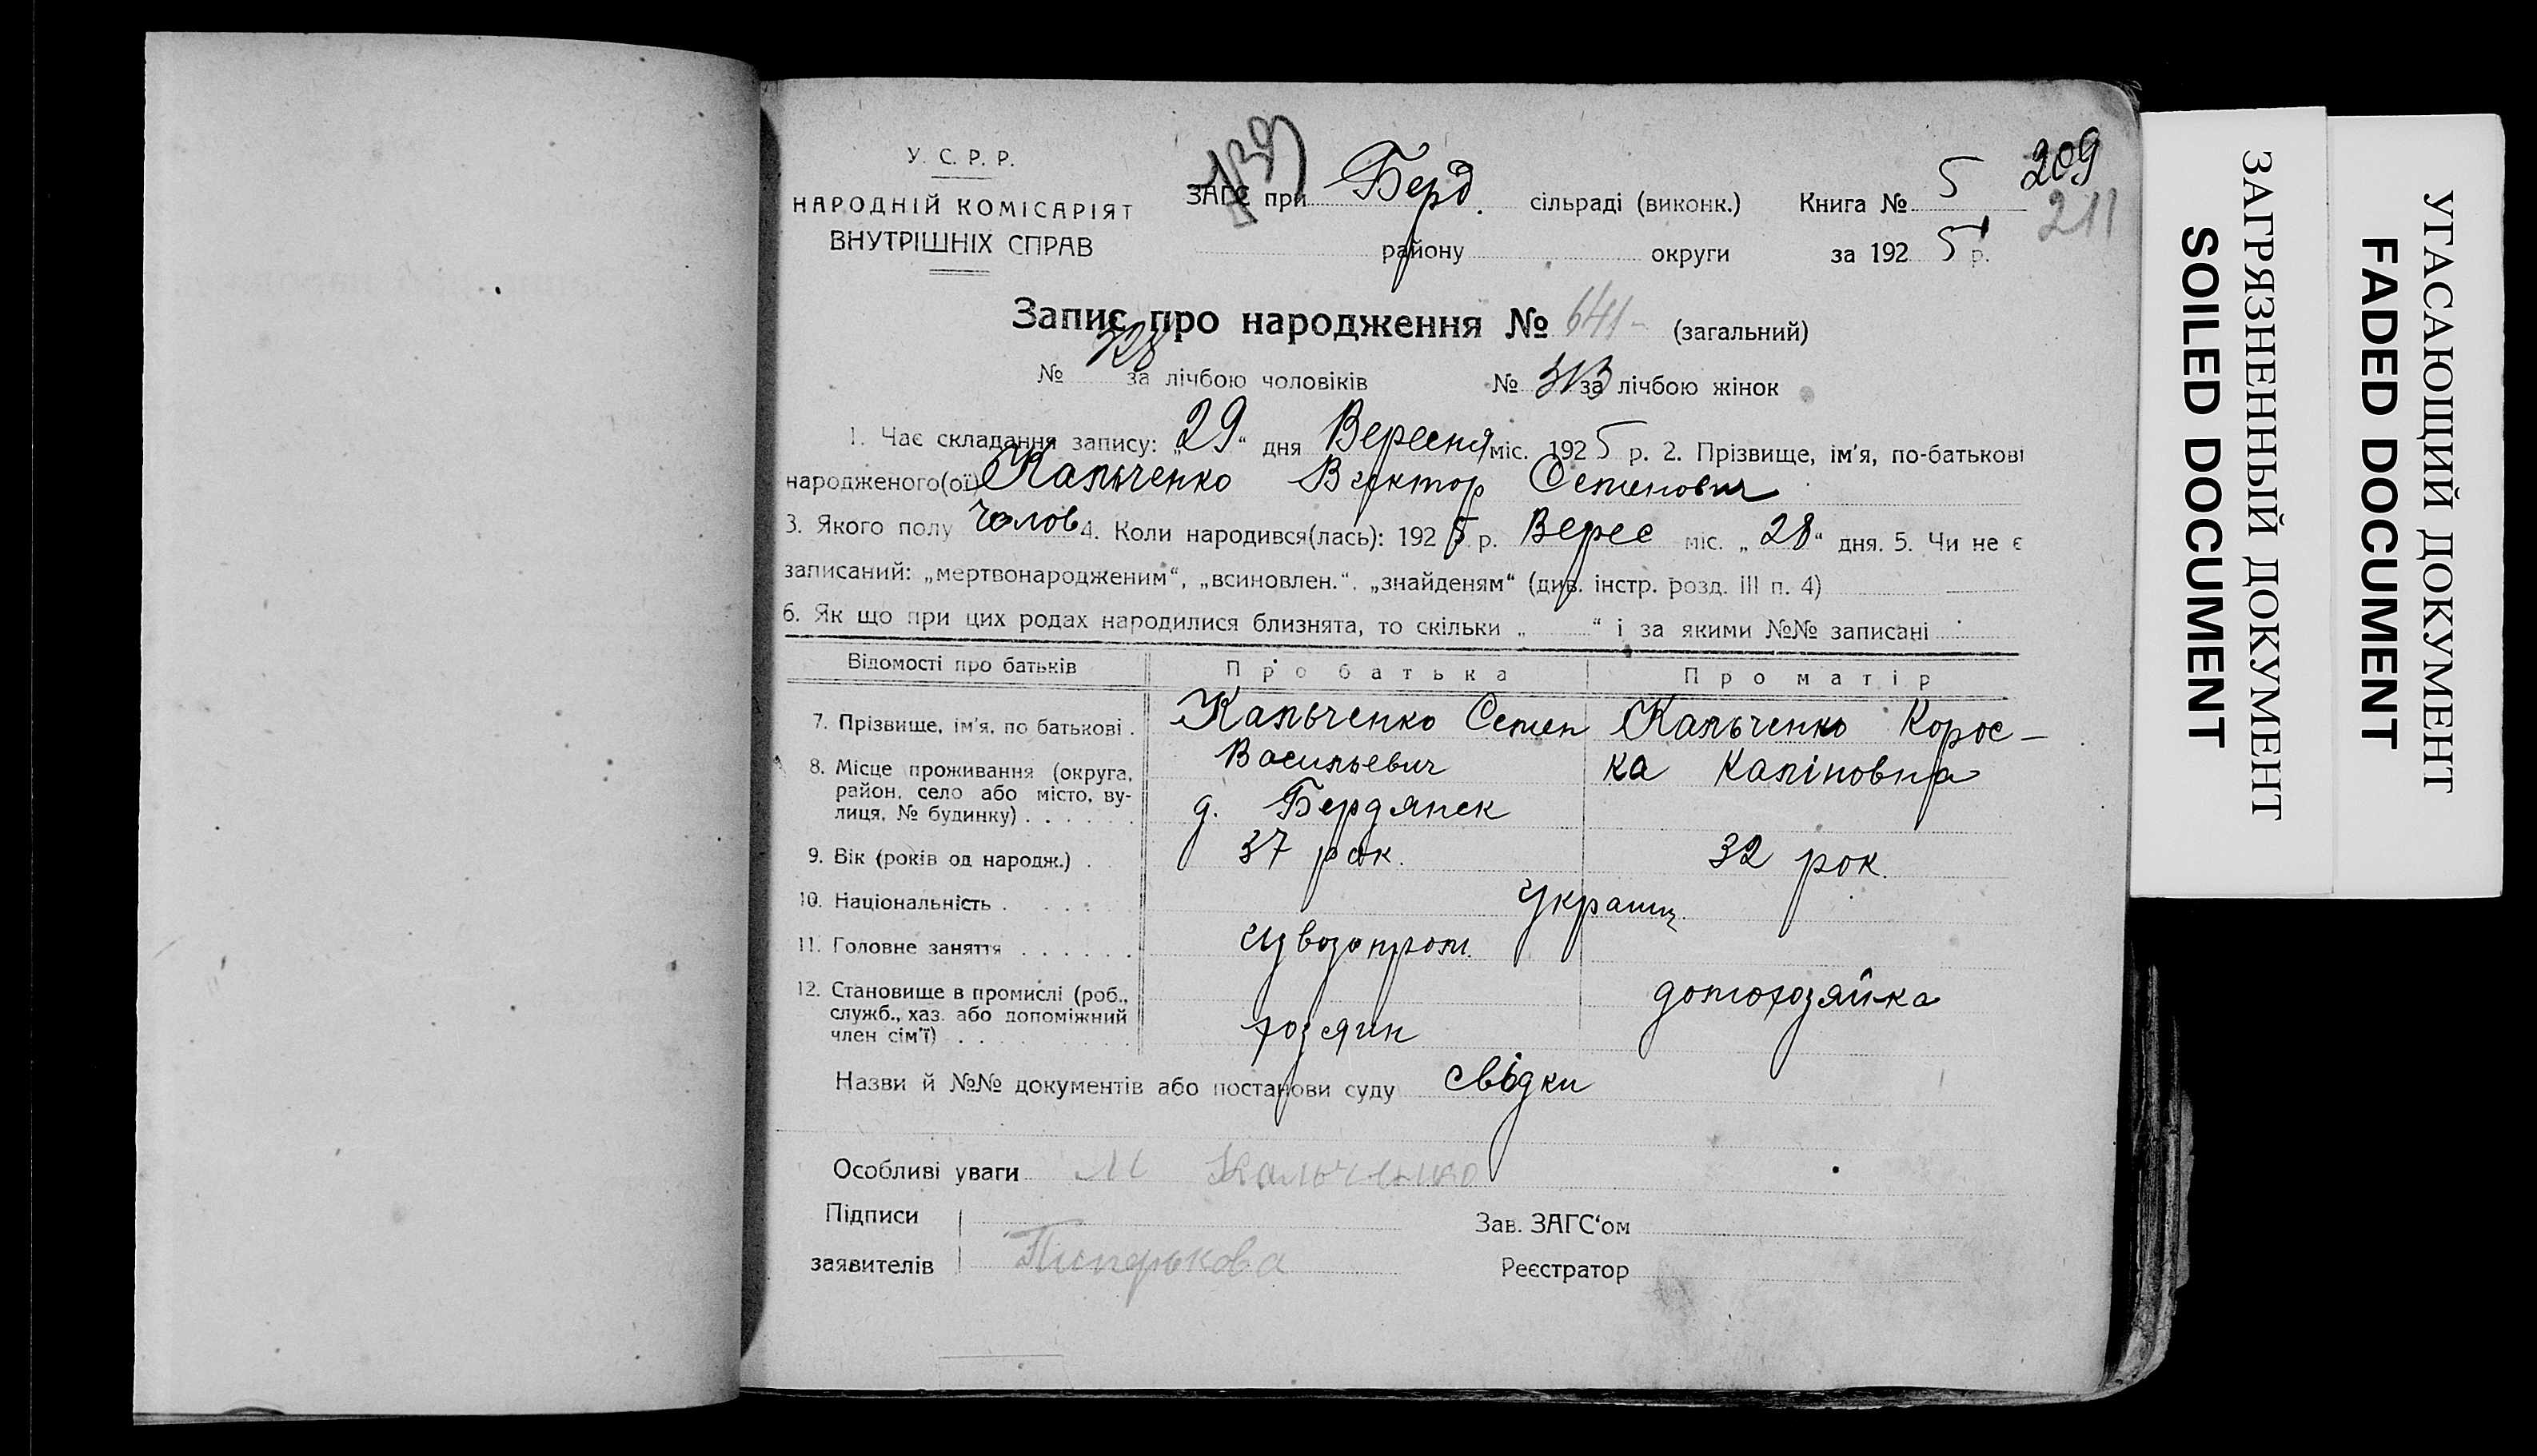 У. С. Р. Р.
НАРОДНІЙ КОМІСАРІЯТ
ВНУТРІШНІХ СПРАВ
ЗАГС при Берд. сільраді (виконк.) Книга № 5
209
211
району округи за 192 5 р.
Запис про народження № 641 - (загальний)
№ 328 за лічбою чоловіків № 313 за лічбою жінок
1. Час складання запису: „29“ дня Вересня міс. 1925 р. 2. Прізвище, ім'я, по-батькові
народженого(ої) Кальченко Віктор Семенович
3. Якого полу чолов 4. Коли народився(лась): 192 5 р. Верес міс. „28“ дня. 5. Чи не є
записаний: „мертвонародженим“, „всиновлен.“, „знайденям“ (див. інстр. розд. III п. 4)
6. Як що при цих родах народилися близнята, то скільки „ “ і за якими №№ записані
Відомості про батьків Про батька Про матір
7. Прізвище, ім'я, по батькові . Кальченко Семен Кальченко Корос-
Васильевич ка Каліновна
8. Місце проживання (округа,
район, село або місто, ву-
лиця, № будинку) . . . . . . г. Бердянск
9. Вік (років од народж.) . 37 рок. 32 рок.
10. Національність . . . . . Украінц
11. Головне заняття . . . . . . извозопром.
12. Становище в промислі (роб.,
служб., хаз. або допоміжний
член сім'ї) . . . . . . хозяин домохозяйка
Назви й №№ документів або постанови суду свідки
Особливі уваги М Кальченко
Підписи Зав. ЗАГС'ом
заявителів Реєстратор
ЗАГРЯЗНЕННЫЙ ДОКУМЕНТ
SOILED DOCUMENT
УГАСАЮЩИЙ ДОКУМЕНТ
FADED DOCUMENT